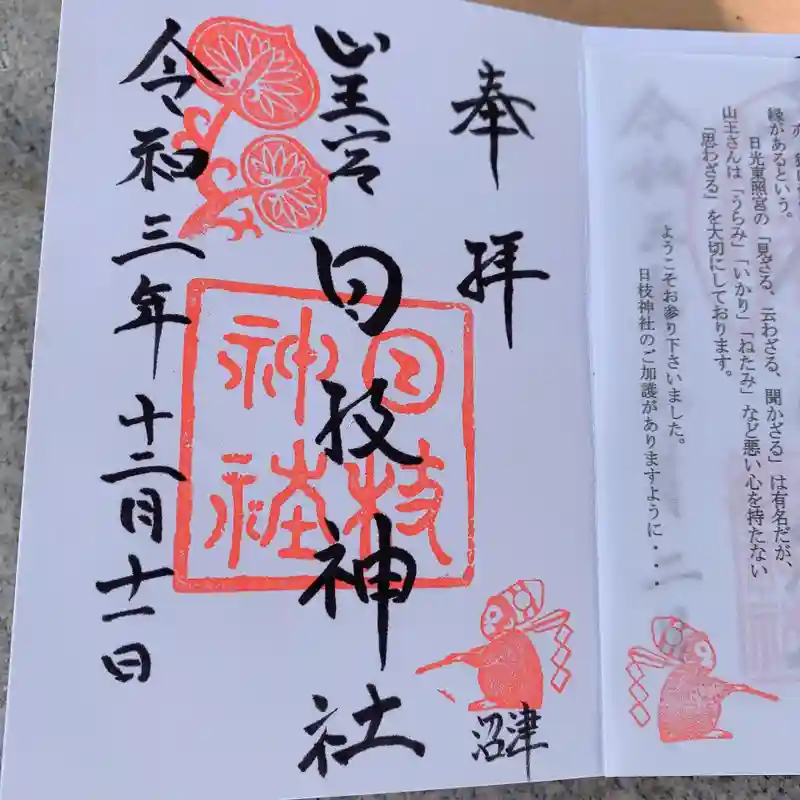 縁があるという。
日光東照宮の「見ざる、云わざる、聞かざる」は有名だが、
山王さんは「うらみ」「いかり」「ねたみ」など悪い心を持たない
「思わざる」を大切にしております。
ようこそお参り下さいました。
日枝神社のご加護がありますように・・・
奉拝
沼津
山王宮
日枝神社
日枝神社
令和三年十二月十一日